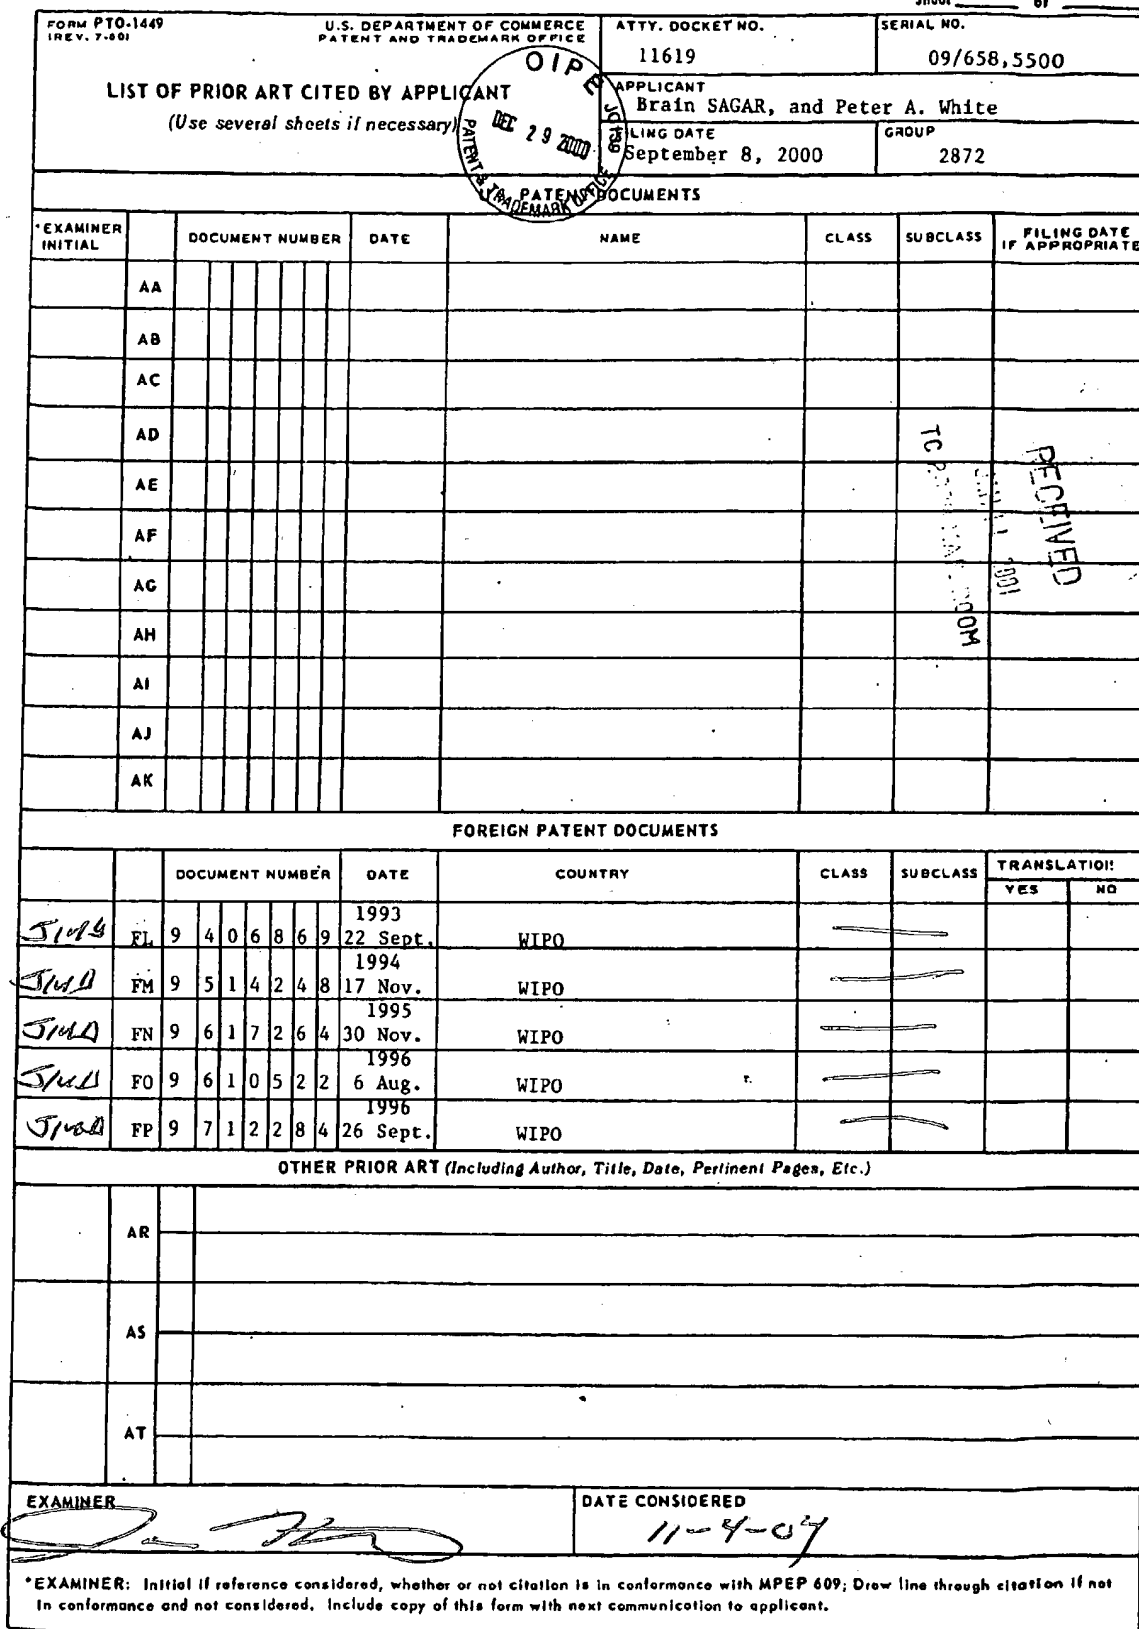 FORM PTO-1449
(REV. 7-80)
U.S. DEPARTMENT OF COMMERCE
PATENT AND TRADEMARK OFFICE
ATTY. DOCKET NO.
11619
SERIAL NO.
09/658,5500
LIST OF PRIOR ART CITED BY APPLICANT
(Use several sheets if necessary)
OIPE JC139
DEC 29 2000
PATENT & TRADEMARK OFFICE
APPLICANT
Brain SAGAR, and Peter A. White
LING DATE
September 8, 2000
GROUP
2872
PATENT DOCUMENTS
*EXAMINER INITIAL DOCUMENT NUMBER DATE NAME CLASS SUBCLASS FILING DATE IF APPROPRIATE
AA
AB
AC
AD
AE
AF
AG
AH
AI
AJ
AK
RECEIVED
2001
TC ROOM
FOREIGN PATENT DOCUMENTS
DOCUMENT NUMBER DATE COUNTRY CLASS SUBCLASS TRANSLATION
YES NO
FL 9406869 1993 22 Sept. WIPO
FM 9514248 1994 17 Nov. WIPO
FN 9617264 1995 30 Nov. WIPO
FO 9610522 1996 6 Aug. WIPO
FP 9712284 1996 26 Sept. WIPO
OTHER PRIOR ART (Including Author, Title, Date, Pertinent Pages, Etc.)
AR
AS
AT
EXAMINER
DATE CONSIDERED
11-4-04
*EXAMINER: Initial if reference considered, whether or not citation is in conformance with MPEP 609; Draw line through citation if not
in conformance and not considered. Include copy of this form with next communication to applicant.